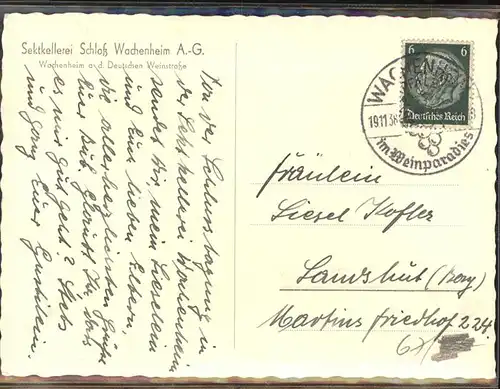 Sektkellerei Schloß Wachenheim A.-G.
Wachenheim a. d. Deutschen Weinstraße
Von der Schlusstagung in
der Sektkellerei Wachenheim
sendet Dir, mein Lieselein
und Euch lieben Eltern
die allerherzlichsten Grüße
Euer
es nur gut geht? Stets
und ganz Euer
6 6
Deutsches Reich
WACHENHEIM
19.11.38
im Weinparadies
Fräulein
Liesel Kofler
Landshut (Bay)
Martins friedhof 224